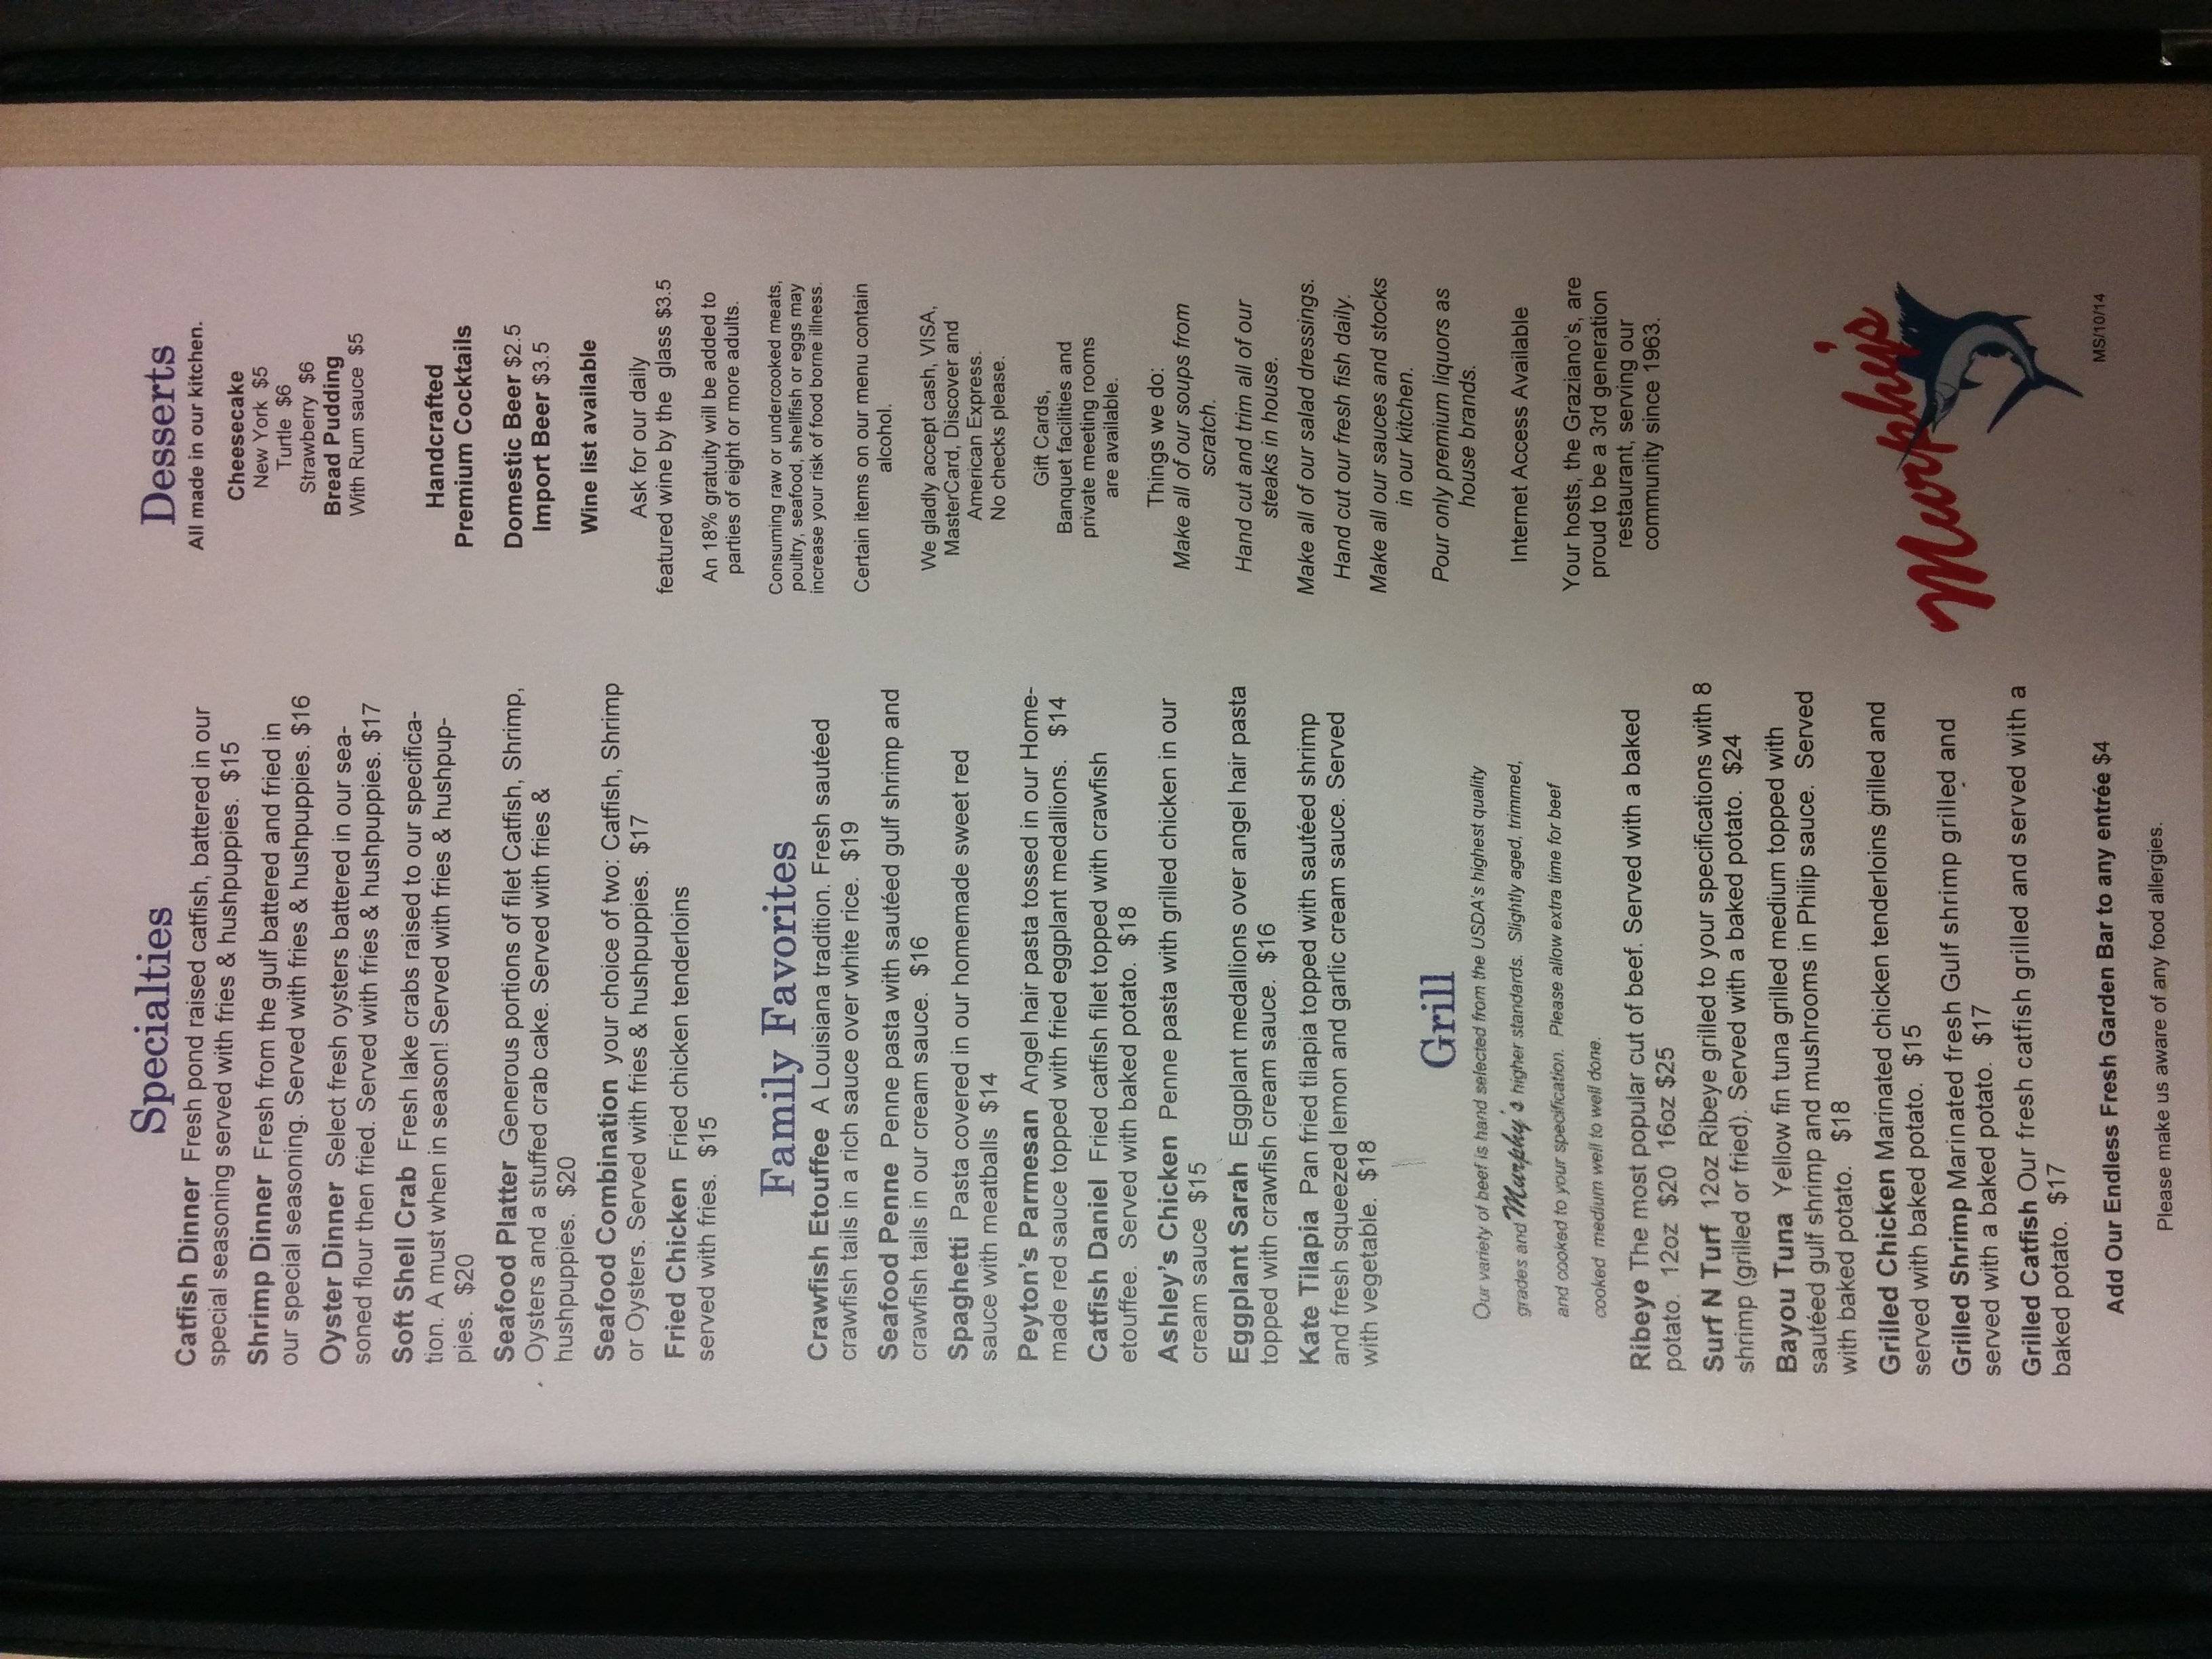 Specialties
Catfish Dinner Fresh pond raised catfish, battered in our
special seasoning served with fries & hushpuppies. $15
Shrimp Dinner Fresh from the gulf battered and fried in
our special seasoning. Served with fries & hushpuppies. $16
Oyster Dinner Select fresh oysters battered in our sea-
soned flour then fried. Served with fries & hushpuppies. $17
Soft Shell Crab Fresh lake crabs raised to our specifica-
tion. A must when in season! Served with fries & hushpup-
pies. $20
Seafood Platter Generous portions of filet Catfish, Shrimp,
Oysters and a stuffed crab cake. Served with fries &
hushpuppies. $20
Seafood Combination your choice of two: Catfish, Shrimp
or Oysters. Served with fries & hushpuppies. $17
Fried Chicken Fried chicken tenderloins
served with fries. $15
Family Favorites
Crawfish Etouffee A Louisiana tradition. Fresh sautéed
crawfish tails in a rich sauce over white rice. $19
Seafood Penne Penne pasta with sautéed gulf shrimp and
crawfish tails in our cream sauce. $16
Spaghetti Pasta covered in our homemade sweet red
sauce with meatballs $14
Peyton's Parmesan Angel hair pasta tossed in our Home-
made red sauce topped with fried eggplant medallions. $14
Catfish Daniel Fried catfish filet topped with crawfish
etouffee. Served with baked potato. $18
Ashley's Chicken Penne pasta with grilled chicken in our
cream sauce $15
Eggplant Sarah Eggplant medallions over angel hair pasta
topped with crawfish cream sauce. $16
Kate Tilapia Pan fried tilapia topped with sautéed shrimp
and fresh squeezed lemon and garlic cream sauce. Served
with vegetable. $18
Grill
Our variety of beef is hand selected from the USDA's highest quality
grades and Murphy's higher standards. Slightly aged, trimmed,
and cooked to your specification. Please allow extra time for beef
cooked medium well to well done.
Ribeye The most popular cut of beef. Served with a baked
potato. 12oz $20 16oz $25
Surf N Turf 12oz Ribeye grilled to your specifications with 8
shrimp (grilled or fried). Served with a baked potato. $24
Bayou Tuna Yellow fin tuna grilled medium topped with
sautéed gulf shrimp and mushrooms in Philip sauce. Served
with baked potato. $18
Grilled Chicken Marinated chicken tenderloins grilled and
served with baked potato. $15
Grilled Shrimp Marinated fresh Gulf shrimp grilled and
served with a baked potato. $17
Grilled Catfish Our fresh catfish grilled and served with a
baked potato. $17
Add Our Endless Fresh Garden Bar to any entrée $4
Please make us aware of any food allergies.
Desserts
All made in our kitchen.
Cheesecake
New York $5
Turtle $6
Strawberry $6
Bread Pudding
With Rum sauce $5
Handcrafted
Premium Cocktails
Domestic Beer $2.5
Import Beer $3.5
Wine list available
Ask for our daily
featured wine by the glass $3.5
An 18% gratuity will be added to
parties of eight or more adults.
Consuming raw or undercooked meats,
poultry, seafood, shellfish or eggs may
increase your risk of food borne illness.
Certain items on our menu contain
alcohol.
We gladly accept cash, VISA,
MasterCard, Discover and
American Express.
No checks please.
Gift Cards,
Banquet facilities and
private meeting rooms
are available.
Things we do:
Make all of our soups from
scratch.
Hand cut and trim all of our
steaks in house.
Make all of our salad dressings.
Hand cut our fresh fish daily.
Make all our sauces and stocks
in our kitchen.
Pour only premium liquors as
house brands.
Internet Access Available
Your hosts, the Graziano's, are
proud to be a 3rd generation
restaurant, serving our
community since 1963.
Murphy's
MS/10/14